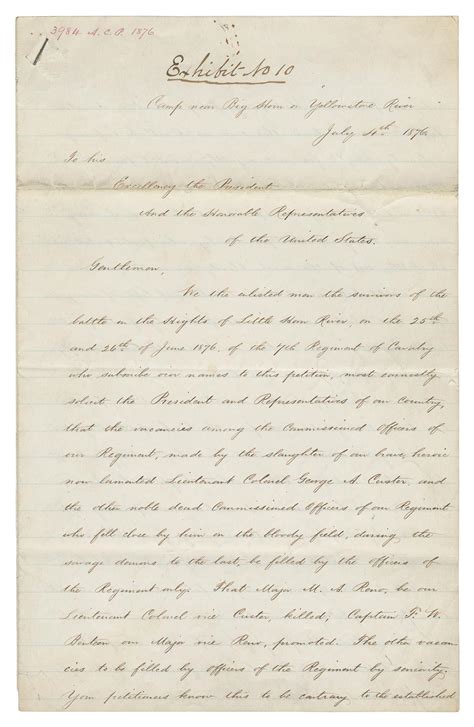 3984 A.C.P. 1876
Exhibit No 10
Camp near Big Horn on Yellowstone River
July 4th 1876.
To his
Excellency the President
And the Honorable Representatives
of the United States.
Gentlemen,
We the enlisted men the survivors of the
battle on the Hights of Little Horn River, on the 25th
and 26th of June 1876, of the 7th Regiment of Cavalry
who subscribe our names to this petition, most earnestly
solicit the President and Representatives of our Country,
that the vacancies among the Commissioned Officers of
our Regiment, made by the slaughter of our brave, heroic
now lamented Lieutenant Colonel George A. Custer, and
the other noble dead Commissioned Officers of our Regiment
who fell close by him on the bloody field, daring the
savage demons to the last, be filled by the officers of
the Regiment only. That Major M. A. Reno, be our
Lieutenant Colonel vice Custer, killed; Captain F. W.
Benteen our Major vice Reno, promoted. The other vacan-
cies to be filled by officers of the Regiment by seniority.
Your petitioners know this to be contrary to the established